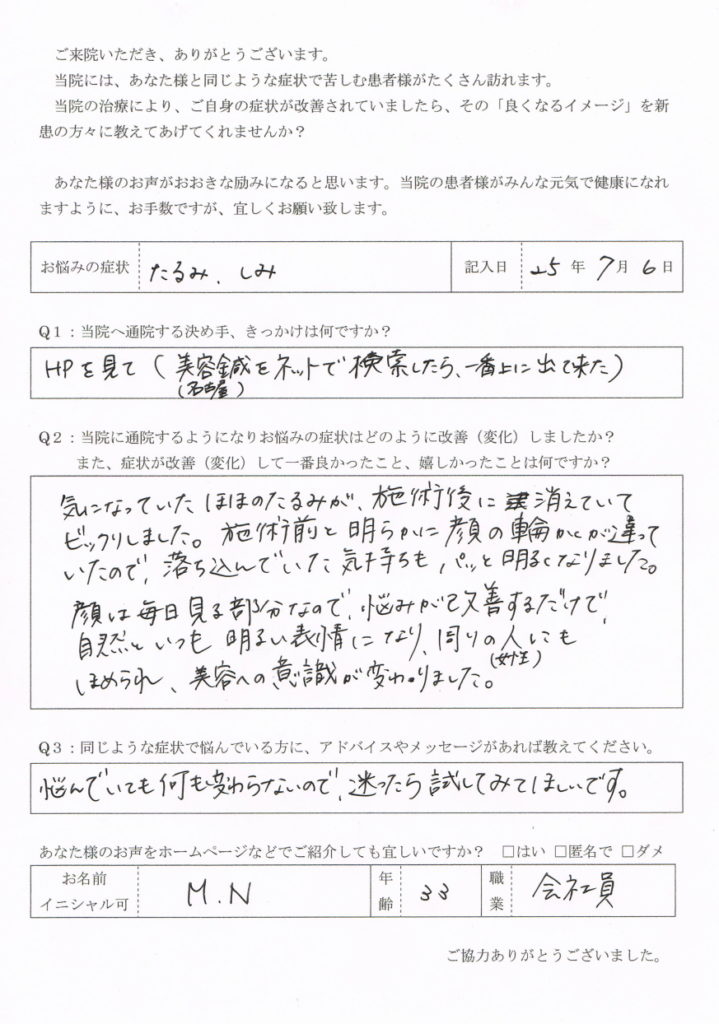 ご来院いただき、ありがとうございます。
当院には、あなた様と同じような症状で苦しむ患者様がたくさん訪れます。
当院の治療により、ご自身の症状が改善されていましたら、その「良くなるイメージ」を新
患の方々に教えてあげてくれませんか？
あなた様のお声がおおきな励みになると思います。当院の患者様がみんな元気で健康になれ
ますように、お手数ですが、宜しくお願い致します。
お悩みの症状 たるみ、しみ 記入日 25年 7月 6日
Q1：当院へ通院する決め手、きっかけは何ですか？
HPを見て（美容鍼をネットで検索したら、一番上に出て来た）
（名古屋）
Q2：当院に通院するようになりお悩みの症状はどのように改善（変化）しましたか？
また、症状が改善（変化）して一番良かったこと、嬉しかったことは何ですか？
気になっていたほほのたるみが、施術後に消えていて
ビックリしました。施術前と明らかに顔の輪かくが違って
いたので、落ち込んでいた気持ちも、パッと明るくなりました。
顔は毎日見る部分なので、悩みが改善するだけで、
自然といつも明るい表情になり、周りの人にも
（女性）
ほめられ、美容への意識が変わりました。
Q3：同じような症状で悩んでいる方に、アドバイスやメッセージがあれば教えてください。
悩んでいても何も変わらないので、迷ったら試してみてほしいです。
あなた様のお声をホームページなどでご紹介しても宜しいですか？ □はい □匿名で □ダメ
お名前 年 職
イニシャル可 M.N 齢 33 業 会社員
ご協力ありがとうございました。